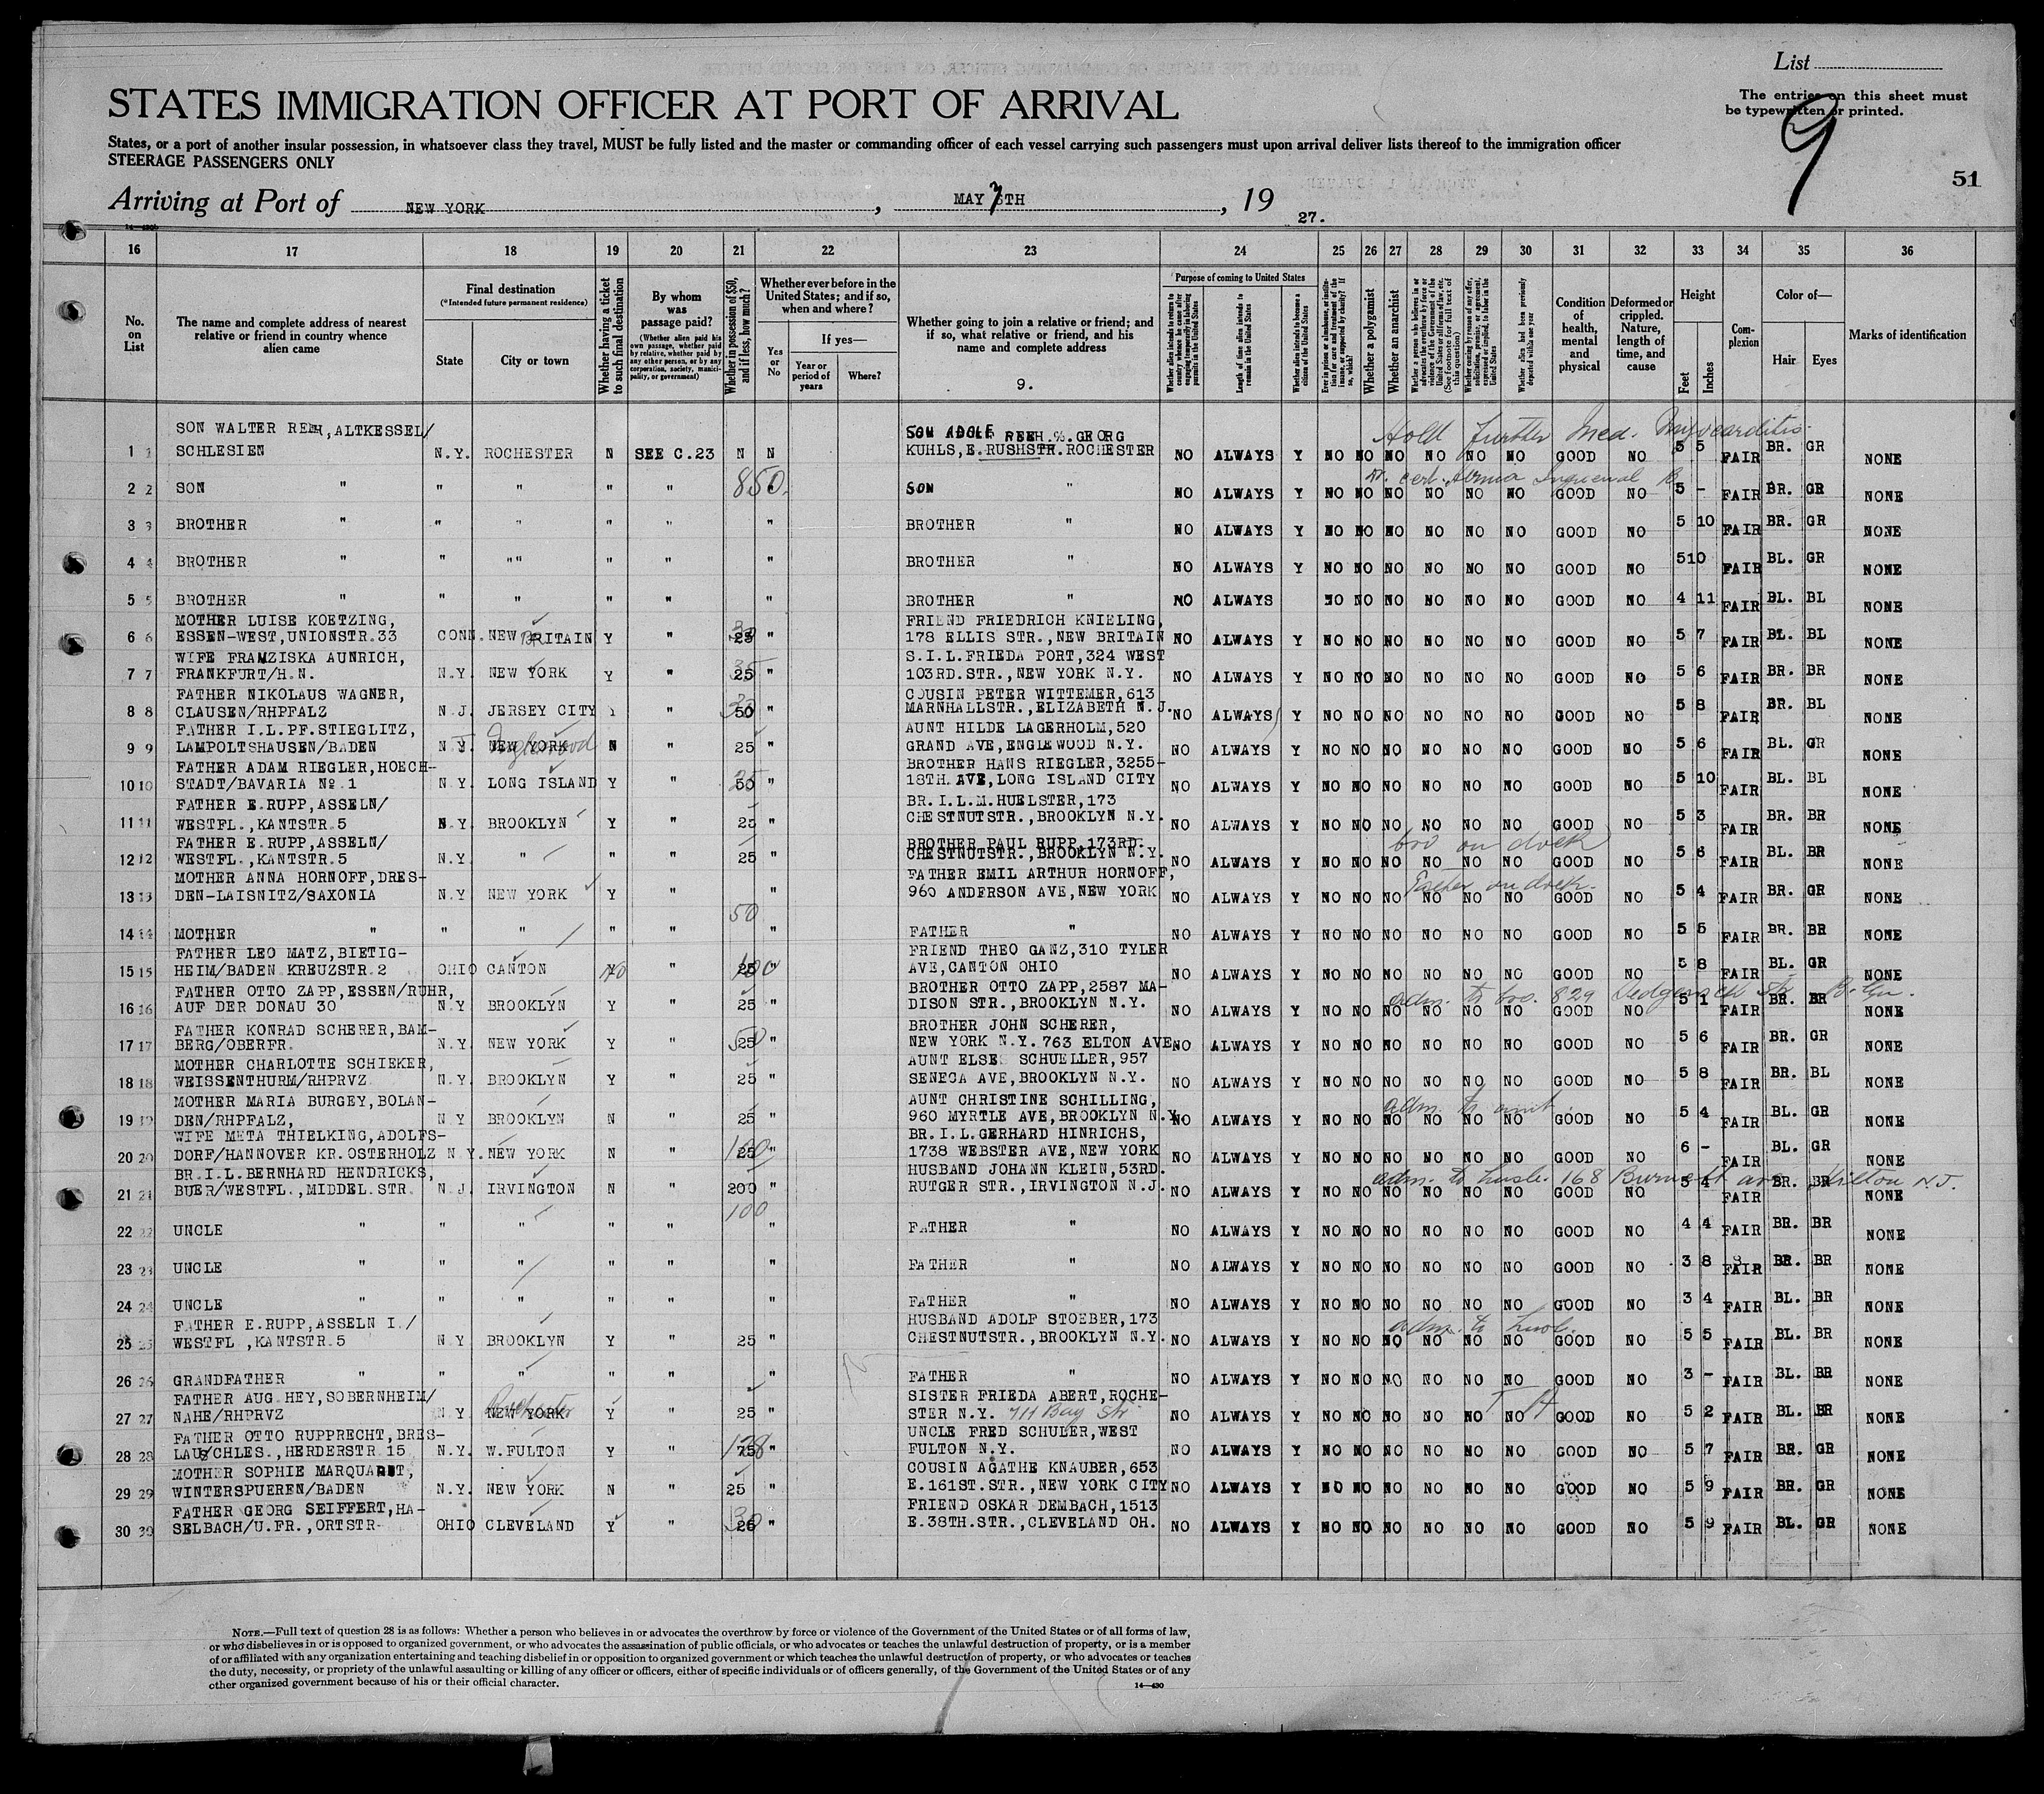 List
The entries on this sheet must
be typewritten or printed.
9
51
STATES IMMIGRATION OFFICER AT PORT OF ARRIVAL
States, or a port of another insular possession, in whatsoever class they travel, MUST be fully listed and the master or commanding officer of each vessel carrying such passengers must upon arrival deliver lists thereof to the immigration officer
STEERAGE PASSENGERS ONLY
Arriving at Port of NEW YORK, MAY 7TH, 19 27.
14—430b
16 17 18 19 20 21 22 23 24 25 26 27 28 29 30 31 32 33 34 35 36
No. on List
The name and complete address of nearest relative or friend in country whence alien came
Final destination
(*Intended future permanent residence)
State
City or town
Whether having a ticket to such final destination
By whom was passage paid?
(Whether alien paid his own passage, whether paid by relative, whether paid by any other person, or by any corporation, society, municipality, or government)
Whether in possession of $50, and if less, how much?
Whether ever before in the United States; and if so, when and where?
Yes or No
If yes—
Year or period of years
Where?
Whether going to join a relative or friend; and if so, what relative or friend, and his name and complete address
9.
Purpose of coming to United States
Whether alien intends to return to country whence he came after engaging temporarily in laboring pursuits in the United States
Length of time alien intends to remain in the United States
Whether alien intends to become a citizen of the United States
Ever in prison or almshouse, or institution for care and treatment of the insane, or supported by charity? If so, which?
Whether a polygamist
Whether an anarchist
(See footnote for full text of this question)
Whether alien had been previously deported within one year
Condition of health, mental and physical
Deformed or crippled. Nature, length of time, and cause
Height
Feet
Inches
Complexion
Color of—
Hair
Eyes
Marks of identification
Hold further Med. Myocarditis
SON WALTER REEH, ALTKESSEL/ SON ADOLF REEH. % GEORG
1 1 SCHLESIEN N.Y. ROCHESTER N SEE C.23 N N KUHLS, E. RUSHSTR. ROCHESTER NO ALWAYS Y NO NO NO NO NO NO GOOD NO 5 5 FAIR BR. GR NONE
cert. Hernia Inguinal
2 2 SON " " " " " 850 " SON " NO ALWAYS Y NO NO NO NO NO NO GOOD NO 5 - FAIR BR. GR NONE
3 3 BROTHER " " " " " " BROTHER " NO ALWAYS Y NO NO NO NO NO NO GOOD NO 5 10 FAIR BR. GR NONE
4 4 BROTHER " " "" " " " BROTHER " NO ALWAYS Y NO NO NO NO NO NO GOOD NO 5 10 FAIR BL. GR NONE
5 5 BROTHER " " " " " " BROTHER " NO ALWAYS NO NO NO NO NO NO GOOD NO 4 11 FAIR BL. BL NONE
MOTHER LUISE KOETZING, FRIEND FRIEDRICH KNIELING,
6 6 ESSEN-WEST, UNIONSTR. 33 CONN. NEW BRITAIN Y " 25 " 178 ELLIS STR., NEW BRITAIN NO ALWAYS Y NO NO NO NO NO NO GOOD NO 5 7 FAIR BL. BL NONE
WIFE FRAMZISKA AUNRICH, S.I.L. FRIEDA PORT, 324 WEST
7 7 FRANKFURT/H.N. N.Y. NEW YORK Y " 25 " 103RD. STR., NEW YORK N.Y. NO ALWAYS Y NO NO NO NO NO NO GOOD NO 5 6 FAIR BR. BR NONE
FATHER NIKOLAUS WAGNER, COUSIN PETER WITTEMER, 613
8 8 CLAUSEN/RHPFALZ N.J. JERSEY CITY Y " 50 " MARNHALLSTR., ELIZABETH N.J. NO ALWAYS Y NO NO NO NO NO NO GOOD NO 5 8 FAIR BR. BL NONE
FATHER I.L. PF. STIEGLITZ, AUNT HILDE LAGERHOLM, 520
9 9 LAMPOLTSHAUSEN/BADEN N.J. NEW YORK Englewood N " 25 " GRAND AVE, ENGLEWOOD N.Y. NO ALWAYS Y NO NO NO NO NO NO GOOD NO 5 6 FAIR BL. GR NONE
FATHER ADAM RIEGLER, HOECH- BROTHER HANS RIEGLER, 3255-
10 10 STADT/BAVARIA № 1 N.Y. LONG ISLAND Y " 50 " 18TH. AVE, LONG ISLAND CITY NO ALWAYS Y NO NO NO NO NO NO GOOD NO 5 10 FAIR BL. BL NONE
FATHER E. RUPP, ASSELN/ BR. I.L. M. HUELSTER, 173
11 11 WESTFL., KANTSTR. 5 N.Y. BROOKLYN Y " 25 " CHESTNUTSTR., BROOKLYN N.Y. NO ALWAYS Y NO NO NO NO NO NO GOOD NO 5 3 FAIR BR. BR NONE
FATHER E. RUPP, ASSELN/ BROTHER PAUL RUPP, 173RD. bro on dock
12 12 WESTFL., KANTSTR. 5 N.Y. " " 25 " CHESTNUTSTR., BROOKLYN N.Y. NO ALWAYS Y NO NO NO NO NO NO GOOD NO 5 6 FAIR BL. BR NONE
MOTHER ANNA HORNOFF, DRES- FATHER EMIL ARTHUR HORNOFF, Father on dock.
13 13 DEN-LAISNITZ/SAXONIA N.Y. NEW YORK Y " " 960 ANDERSON AVE, NEW YORK NO ALWAYS Y NO NO NO NO NO NO GOOD NO 5 4 FAIR BR. GR NONE
50
14 14 MOTHER " " " " " " FATHER " NO ALWAYS Y NO NO NO NO NO NO GOOD NO 5 5 FAIR BR. BR NONE
FATHER LEO MATZ, BIETIG- FRIEND THEO GANZ, 310 TYLER
15 15 HEIM/BADEN KREUZSTR. 2 OHIO CANTON NO " 25 100 " AVE, CANTON OHIO NO ALWAYS Y NO NO NO NO NO NO GOOD NO 5 8 FAIR BL. GR NONE
FATHER OTTO ZAPP, ESSEN/RUHR, BROTHER OTTO ZAPP, 2587 MA- adm. to bro. 829
16 16 AUF DER DONAU 30 N.Y. BROOKLYN Y " 25 " DISON STR., BROOKLYN N.Y. NO ALWAYS Y NO NO NO NO NO NO GOOD NO 5 1 FAIR BR. BR NONE
FATHER KONRAD SCHERER, BAM- BROTHER JOHN SCHERER,
17 17 BERG/OBERFR. N.Y. NEW YORK Y " 25 50 " NEW YORK N.Y. 763 ELTON AVE NO ALWAYS Y NO NO NO NO NO NO GOOD NO 5 6 FAIR BR. GR NONE
MOTHER CHARLOTTE SCHIEKER, AUNT ELSE SCHUELLER, 957
18 18 WEISSENTHURM/RHPRVZ N.Y. BROOKLYN Y " 25 " SENECA AVE, BROOKLYN N.Y. NO ALWAYS Y NO NO NO NO NO NO GOOD NO 5 8 FAIR BR. BL NONE
MOTHER MARIA BURGEY, BOLAN- AUNT CHRISTINE SCHILLING, adm. to aunt.
19 19 DEN/RHPFALZ, N.Y. BROOKLYN N " 25 " 960 MYRTLE AVE, BROOKLYN N.Y. NO ALWAYS Y NO NO NO NO NO NO GOOD NO 5 4 FAIR BL. GR NONE
WIFE META THIELKING, ADOLFS- BR. I.L. GERHARD HINRICHS,
20 20 DORF/HANNOVER KR. OSTERHOLZ N.Y. NEW YORK N " 25 100 " 1738 WEBSTER AVE, NEW YORK NO ALWAYS Y NO NO NO NO NO NO GOOD NO 6 - FAIR BL. GR NONE
BR. I.L. BERNHARD HENDRICKS, HUSBAND JOHANN KLEIN, 53RD. adm. to husb. 168 Burnett ave, Hilton N.J.
21 21 BUER/WESTFL., MIDDEL. STR. N.J. IRVINGTON N " 200 " RUTGER STR., IRVINGTON N.J. NO ALWAYS Y NO NO NO NO NO NO GOOD NO 5 4 FAIR BR. BR NONE
100
22 22 UNCLE " " " " " " FATHER " NO ALWAYS Y NO NO NO NO NO NO GOOD NO 4 4 FAIR BR. BR NONE
23 23 UNCLE " " " " " " FATHER " NO ALWAYS Y NO NO NO NO NO NO GOOD NO 3 8 FAIR BR. BR NONE
24 24 UNCLE " " " " " " FATHER " NO ALWAYS Y NO NO NO NO NO NO GOOD NO 3 4 FAIR BL. BR NONE
FATHER E. RUPP, ASSELN I./ HUSBAND ADOLF STOEBER, 173 adm. to husb.
25 25 WESTFL., KANTSTR. 5 N.Y. BROOKLYN Y " 25 " CHESTNUTSTR., BROOKLYN N.Y. NO ALWAYS Y NO NO NO NO NO NO GOOD NO 5 5 FAIR BL. BR NONE
26 26 GRANDFATHER " " " " " " FATHER " NO ALWAYS Y NO NO NO NO NO NO GOOD NO 3 - FAIR BL. BR NONE
FATHER AUG. HEY, SOBERNHEIM/ SISTER FRIEDA ABERT, ROCHE-
27 27 NAHE/RHPRVZ N.Y. NEW YORK Rochester Y " 25 " STER N.Y. 711 Bay Str NO ALWAYS Y NO NO NO NO NO NO GOOD NO 5 2 FAIR BL. BR NONE
FATHER OTTO RUPPRECHT, BRES- UNCLE FRED SCHULER, WEST
28 28 LAU/SCHLES., HERDERSTR. 15 N.Y. W. FULTON Y " 75 " FULTON N.Y. NO ALWAYS Y NO NO NO NO NO NO GOOD NO 5 7 FAIR BR. GR NONE
MOTHER SOPHIE MARQUARDT, COUSIN AGATHE KNAUBER, 653
29 29 WINTERSPUEREN/BADEN N.Y. NEW YORK N " 25 " E. 161ST. STR., NEW YORK CITY NO ALWAYS Y NO NO NO NO NO NO GOOD NO 5 9 FAIR BR. GR NONE
FATHER GEORG SEIFFERT, HA- FRIEND OSKAR DEMBACH, 1513
30 30 SELBACH/U.FR., ORTSTR. OHIO CLEVELAND Y " 25 30 " E. 38TH. STR., CLEVELAND OH. NO ALWAYS Y NO NO NO NO NO NO GOOD NO 5 9 FAIR BL. GR NONE
NOTE.—Full text of question 28 is as follows: Whether a person who believes in or advocates the overthrow by force or violence of the Government of the United States or of all forms of law,
or who disbelieves in or is opposed to organized government, or who advocates the assassination of public officials, or who advocates or teaches the unlawful destruction of property, or is a member
of or affiliated with any organization entertaining and teaching disbelief in or opposition to organized government or which teaches the unlawful destruction of property, or who advocates or teaches
the duty, necessity, or propriety of the unlawful assaulting or killing of any officer or officers, either of specific individuals or of officers generally, of the Government of the United States or of any
other organized government because of his or their official character.
14—430